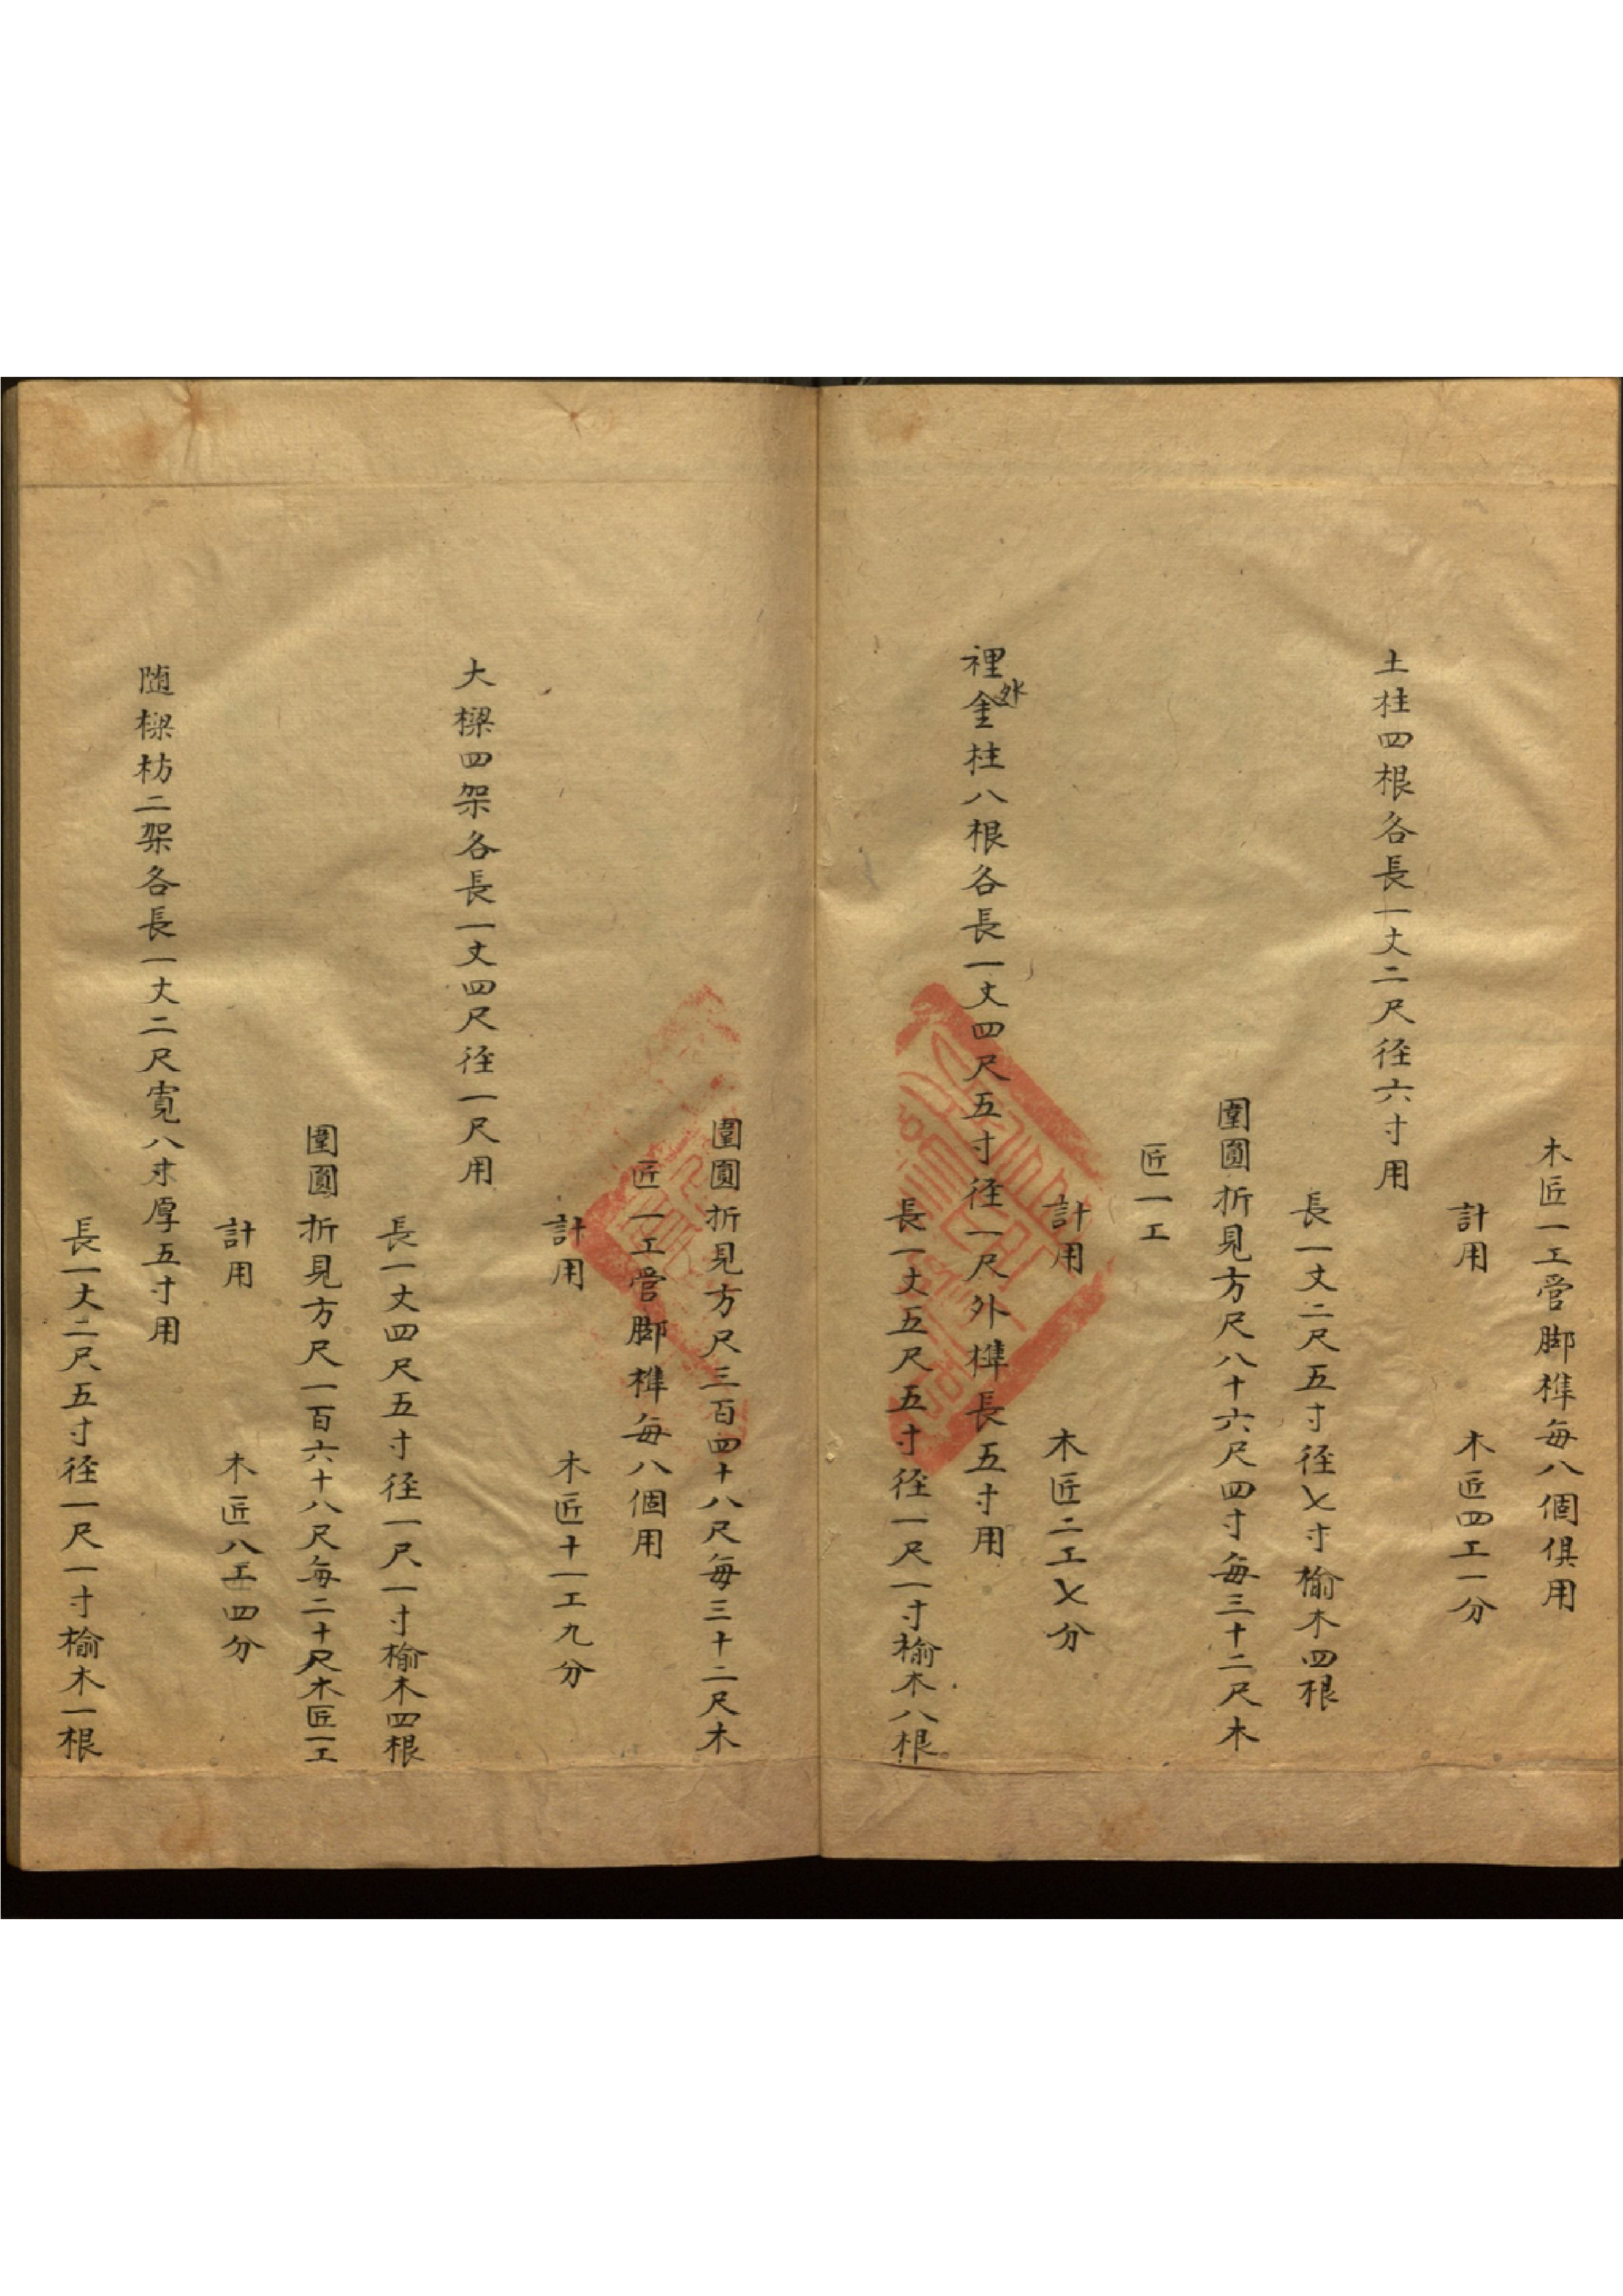 木匠一工管脚榫每八個俱用
計用　木匠四工一分
土柱四根各長一丈二尺徑六寸用
長一丈二尺五寸徑七寸榆木四根
圍圓折見方尺八十六尺四寸每三十二尺木
匠一工
計用　木匠二工七分
裡外金柱八根各長一丈四尺五寸徑一尺外榫長五寸用
長一丈五尺五寸徑一尺一寸榆木八根
圍圓折見方尺三百四十八尺每三十二尺木
匠一工管脚榫每八個用
計用　木匠十一工九分
大樑四架各長一丈四尺徑一尺用
長一丈四尺五寸徑一尺一寸榆木四根
圍圓折見方尺一百六十八尺每二十尺木匠一工
計用　木匠八工四分
随樑枋二架各長一丈二尺寬八寸厚五寸用
長一丈二尺五寸徑一尺一寸榆木一根